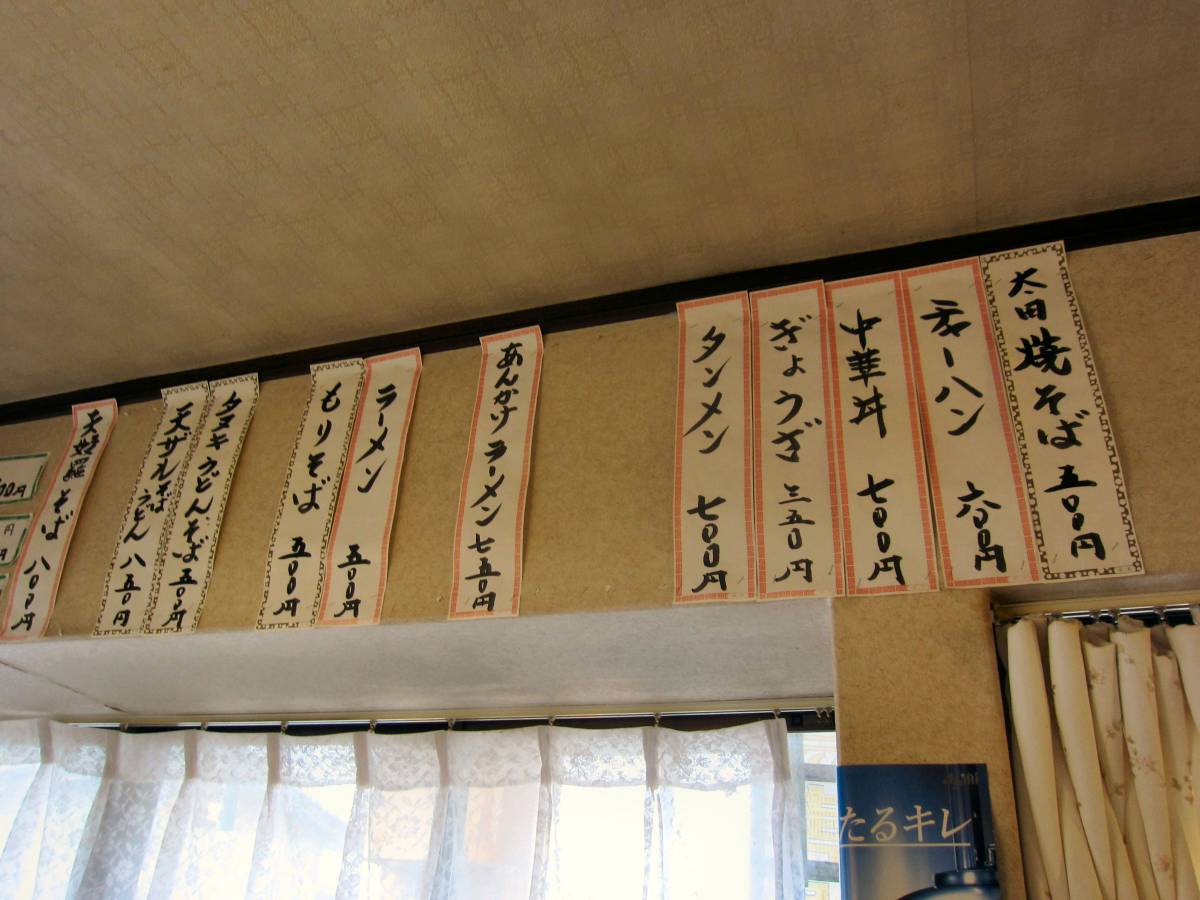 太田焼そば 五〇〇円
チャーハン 六〇〇円
中華丼 七〇〇円
ぎょうざ 三五〇円
タンメン 七〇〇円
あんかけラーメン 七五〇円
ラーメン 五〇〇円
もりそば 五〇〇円
タヌキうどん、そば 五〇〇円
天ザルそばうどん 八五〇円
天婦羅そば 八〇〇円
00円
円
円
たるキレ
Asahi